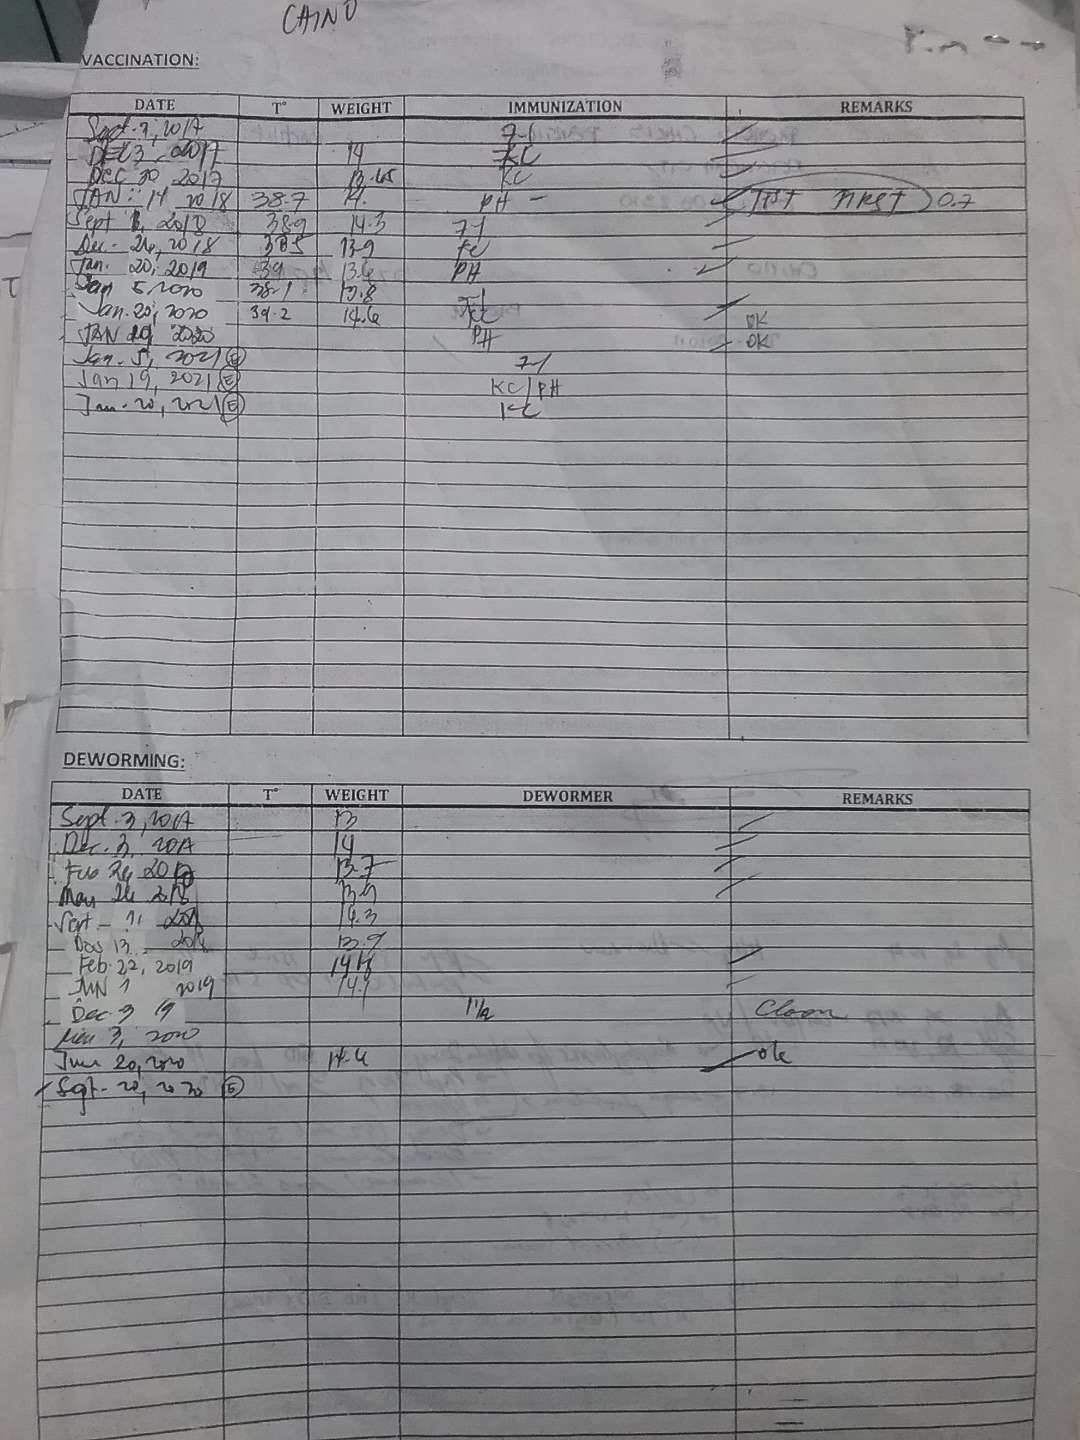 CAINO
VACCINATION:
DATE T° WEIGHT IMMUNIZATION REMARKS
Sept. 3, 2017 7-1
DEC 3 2017 14 KC
Dec 20 2017 13.65 KC
JAN. 14 2018 38.7 14. PH - 0.7
Sept 2018 38.9 14.3 7-1
Dec. 26, 2018 38.5 13.9 KC
Jan. 20, 2019 39 13.6 PH
Jan 5 2020 38.1 13.8 7-1
Jan. 20, 2020 39.2 14.6 KC OK
JAN 29 2020 PH OK
Jan. 5, 2021 E 7-1
Jan 19, 2021 E KC/PH
Jan. 20, 2021 E KC
DEWORMING:
DATE T° WEIGHT DEWORMER REMARKS
Sept. 3, 2017 13
Dec. 3, 2017 14
2018 13.7
2018 13.9
Sept. 2018 14.3
13 2018 13.9
Feb. 22, 2019
JUN 1 2019 14.1
Dec 9 19 Clean
3, 2020
June 20, 2020 14.6 ok
Sept. 20, 2020 E